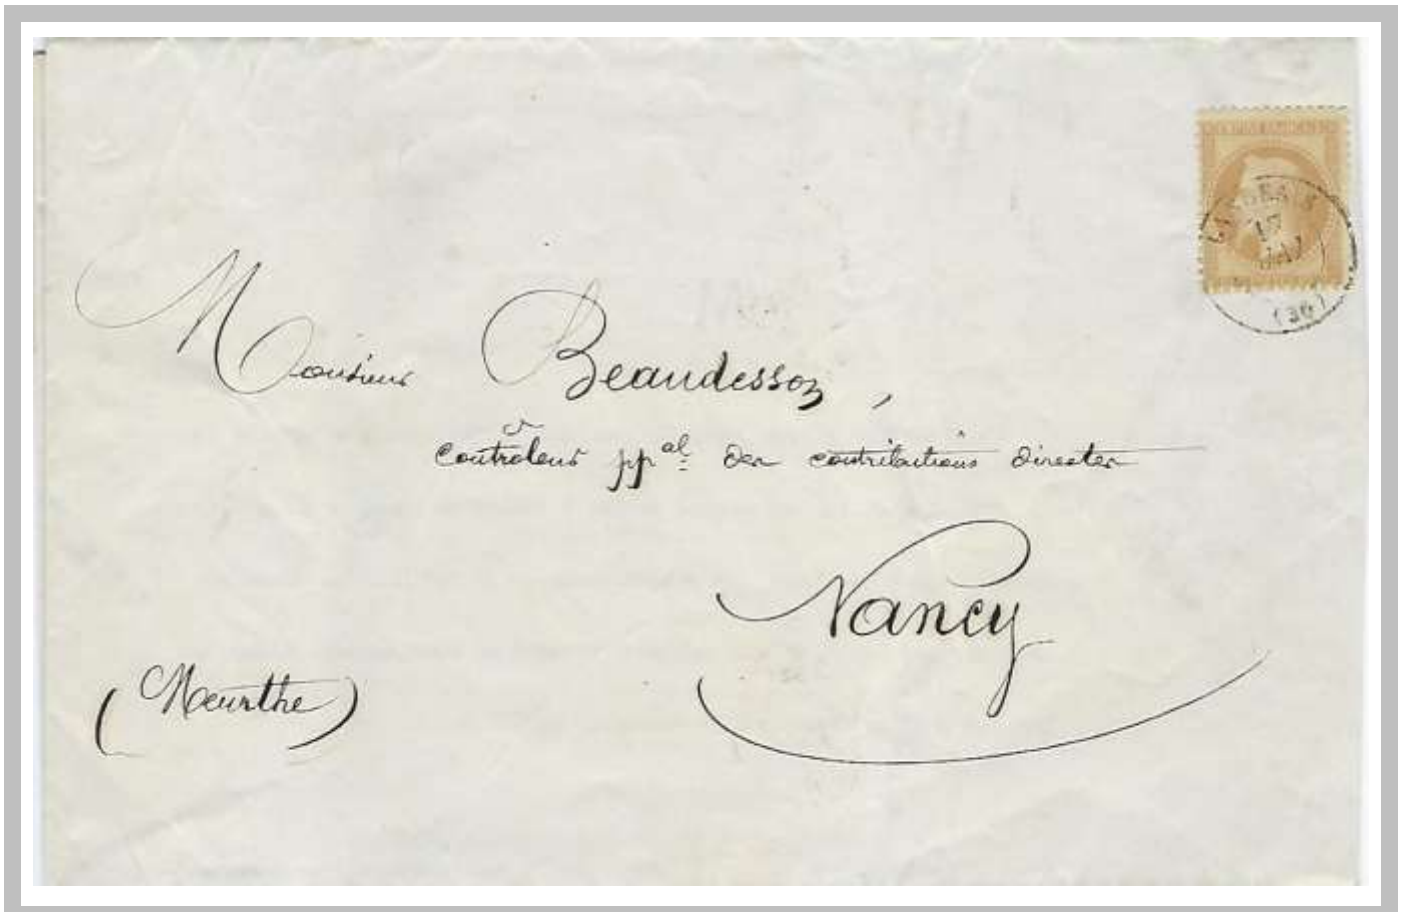 Monsieur Beaudesson,
contrôleur ppal des contributions directes
Nancy
(Meurthe)
17
(36)